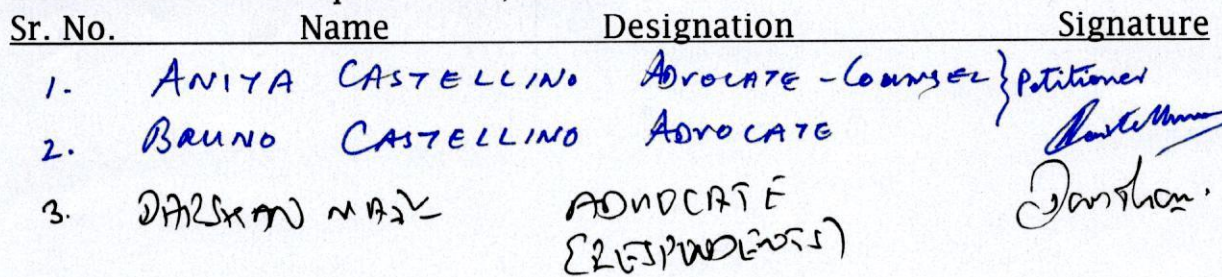 Sr. No. Name Designation Signature
1. ANITA CASTELLINO ADVOCATE - COUNSEL } Petitioner
2. BRUNO CASTELLINO ADVOCATE Castellino
3. DARSHAN NAIK ADVOCATE Darshan.
(RESPONDENTS)